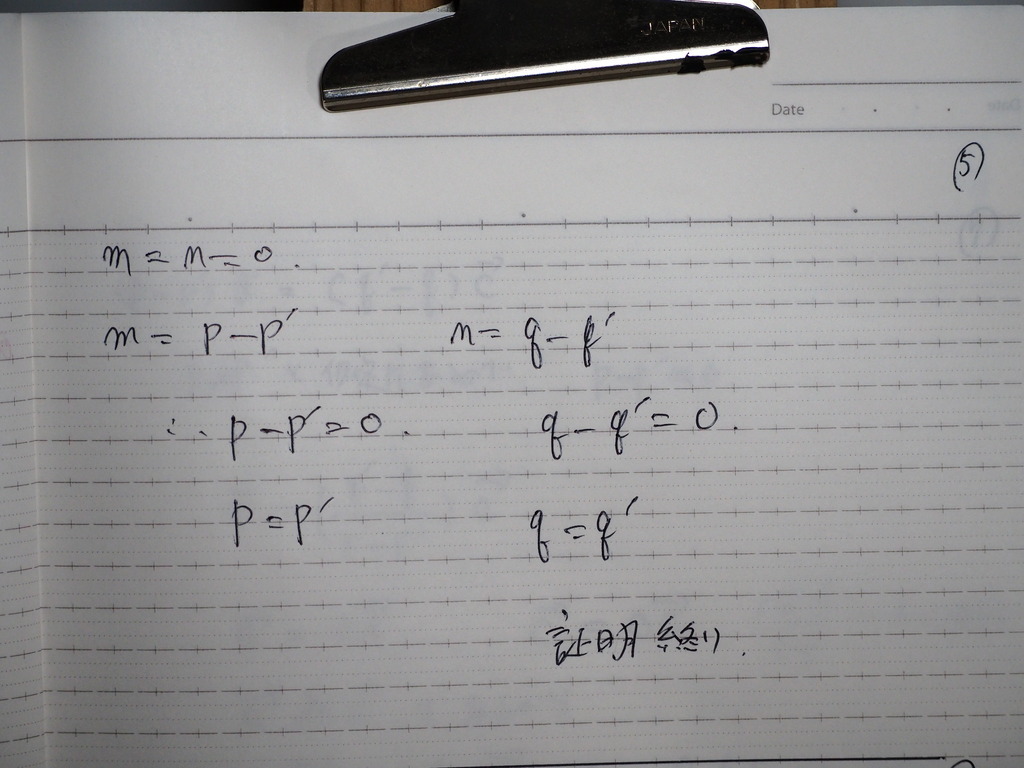 JAPAN
Date
(5)
m = n = 0.
m = p - p′ n = q - q′
∴ p - p′ = 0. q - q′ = 0.
p = p′ q = q′
証明終り.